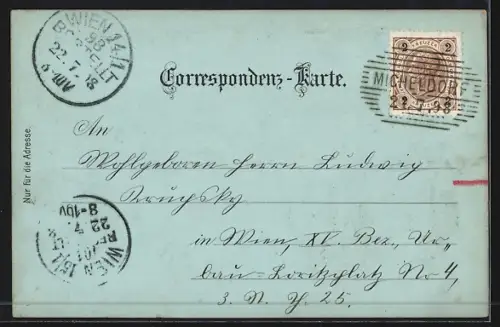 WIEN 14/1
93
BESTELLT
22.7.98
2
KREUZER
2
MICHELDORF
Correspondenz-Karte.
An
Wohlgeboren Herrn Ludwig
in Wien, XV. Bez., Ur-
ban-Loritzplatz No 4,
3. 25.
Nur für die Adresse.
WIEN 15/1
22 7
8-10V